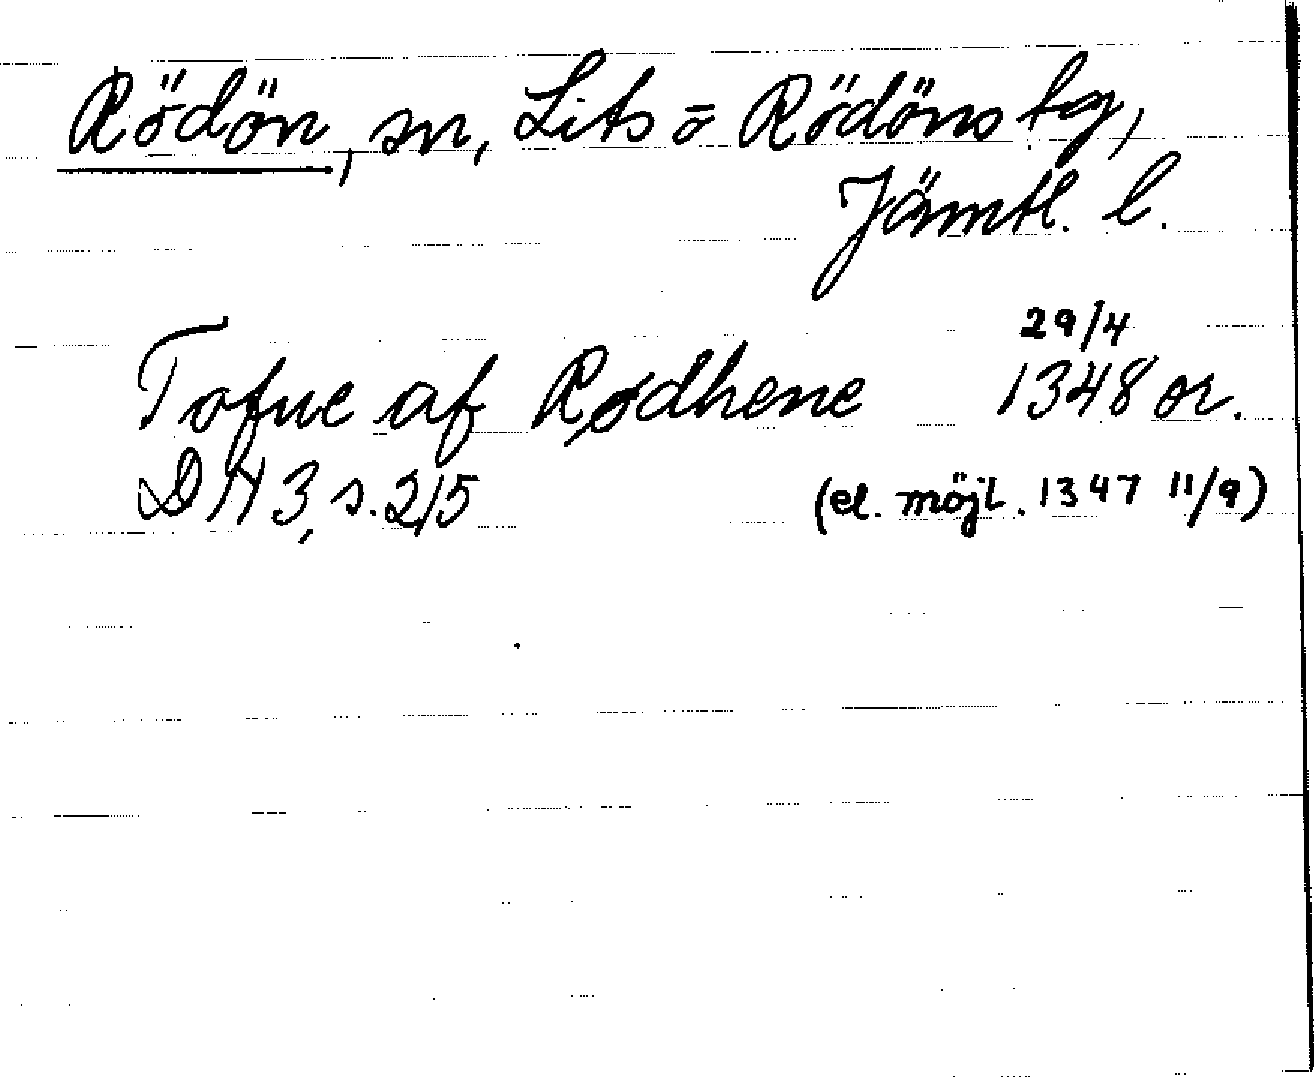 Rödön, sn, Lits o Rödöns tg,
Jämtl. l.
29/4
Tofue af Rødhene 1348 or.
DN 3, s. 215
(el. möjl. 1347 11/9)